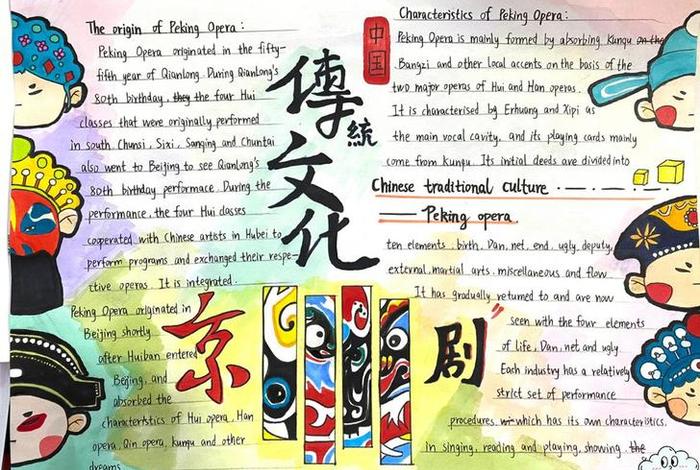 The origin of Peking Opera :
Peking Opera originated in the fifty-
fifth year of Qianlong. During Qianlong's
80th birthday, they the four Hui
classes that were originally performed
in south Chunsi, Sixi, Sanqing and Chuntai
also went to Beijing to see Qianlong's
80th birthday performace. During the
performance, the four Hui classes
cooperated with Chinese artists in Hubei to
perform programs and exchanged their respe-
ctive operas. It is integrated.
Peking Opera originated in
Beijing shortly
after Huiban entered
Beijing, and
absorbed the
characteristics of Hui opera, Han
opera, Qin opera, kunqu and other
dreams
傳
統
文
化
中
国
京
剧
Characteristics of Peking Opera :
Peking Opera is mainly formed by absorbing Kunqu on the
Bangzi and other local accents on the basis of the
two major operas of Hui and Han operas.
It is characterised by Erhuang and Xipi as
the main vocal cavity, and its playing cards mainly
come from kunqu. Its initial deeds are divided into
Chinese traditional culture
Peking opera
ten elements : birth, Dan, net, end, ugly, deputy,
external, martial arts, miscellaneous and flow
It has gradually returned to and are now
seen with the four elements
of life, Dan, net and ugly
Each industry has a relatively
strict set of performance
procedures, which has its own characteristics.
in singing, reading and playing, showing the